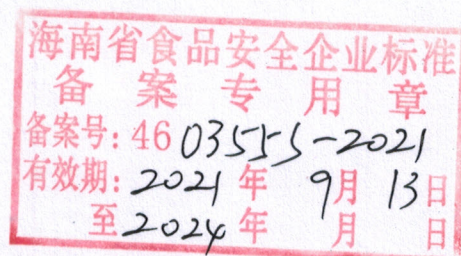 海南省食品安全企业标准
备案专用章
备案号: 46 03555-2021
有效期: 2021年 9月 13日
至 2024年 月 日